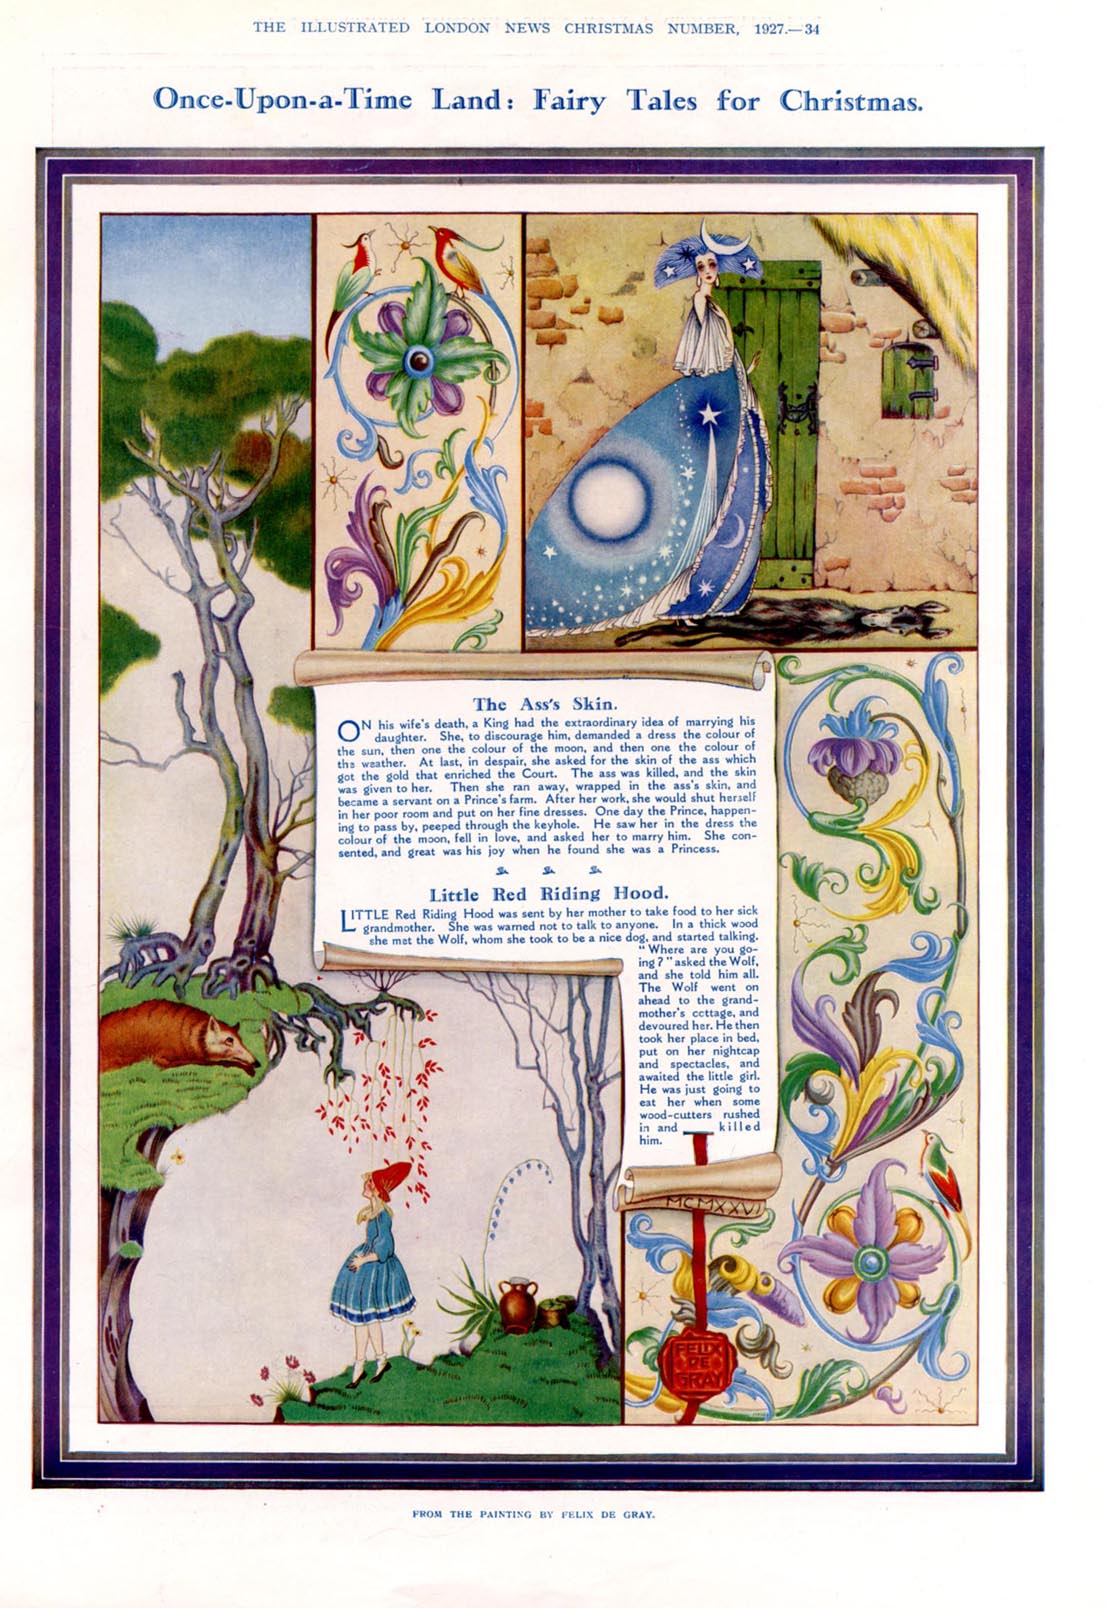 THE ILLUSTRATED LONDON NEWS CHRISTMAS NUMBER, 1927.—34
Once-Upon-a-Time Land: Fairy Tales for Christmas.
The Ass's Skin.
ON his wife's death, a King had the extraordinary idea of marrying his
daughter. She, to discourage him, demanded a dress the colour of
the sun, then one the colour of the moon, and then one the colour of
the weather. At last, in despair, she asked for the skin of the ass which
got the gold that enriched the Court. The ass was killed, and the skin
was given to her. Then she ran away, wrapped in the ass's skin, and
became a servant on a Prince's farm. After her work, she would shut herself
in her poor room and put on her fine dresses. One day the Prince, happen-
ing to pass by, peeped through the keyhole. He saw her in the dress the
colour of the moon, fell in love, and asked her to marry him. She con-
sented, and great was his joy when he found she was a Princess.
Little Red Riding Hood.
LITTLE Red Riding Hood was sent by her mother to take food to her sick
grandmother. She was warned not to talk to anyone. In a thick wood
she met the Wolf, whom she took to be a nice dog, and started talking.
"Where are you go-
ing?" asked the Wolf,
and she told him all.
The Wolf went on
ahead to the grand-
mother's cottage, and
devoured her. He then
took her place in bed,
put on her nightcap
and spectacles, and
awaited the little girl.
He was just going to
eat her when some
wood-cutters rushed
in and killed
him.
MCMXXVI
FELIX
DE
GRAY
FROM THE PAINTING BY FELIX DE GRAY.